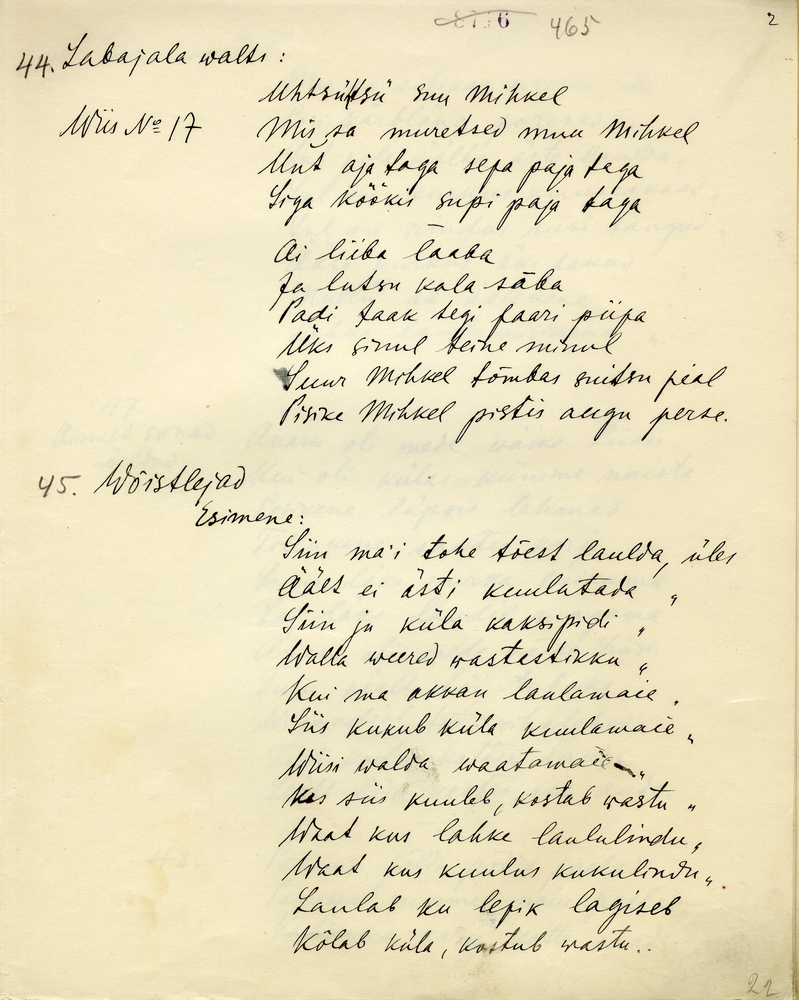 465
2
44. Labajala walts:
Uhtsühtsü suu Mihkel
Wiis № 17 Mis sa muretsed muu Mihkel
Unt aja taga sepa paja taga
Siga köökis supi paja taga
Ai liiba laaba
Ja lutsu kala saba
Padi taak tegi paari piipa
Üks sinul teine minul
Suur Mihkel tõmbas suitsu peal
Pisike Mihkel pistis augu perse.
45. Wõistlejad
Esimene:
Siin ma'i tohe tõest laulda, üles
Äält ei ästi kuulutada „
Siin ju küla kaksipidi „
Walla weered wastastikku „
Kui ma akkan laulamaie „
Siis kukub küla kuulamaie „
Wiisi walda waatamaie „
Kes siis kuuleb, kostab wastu „
Waat kus lahke laululindu „
Waat kus kuulus kukulindu „
Laulab ku lepik lagiseb
Kõlab küla, kostub wastu..
22